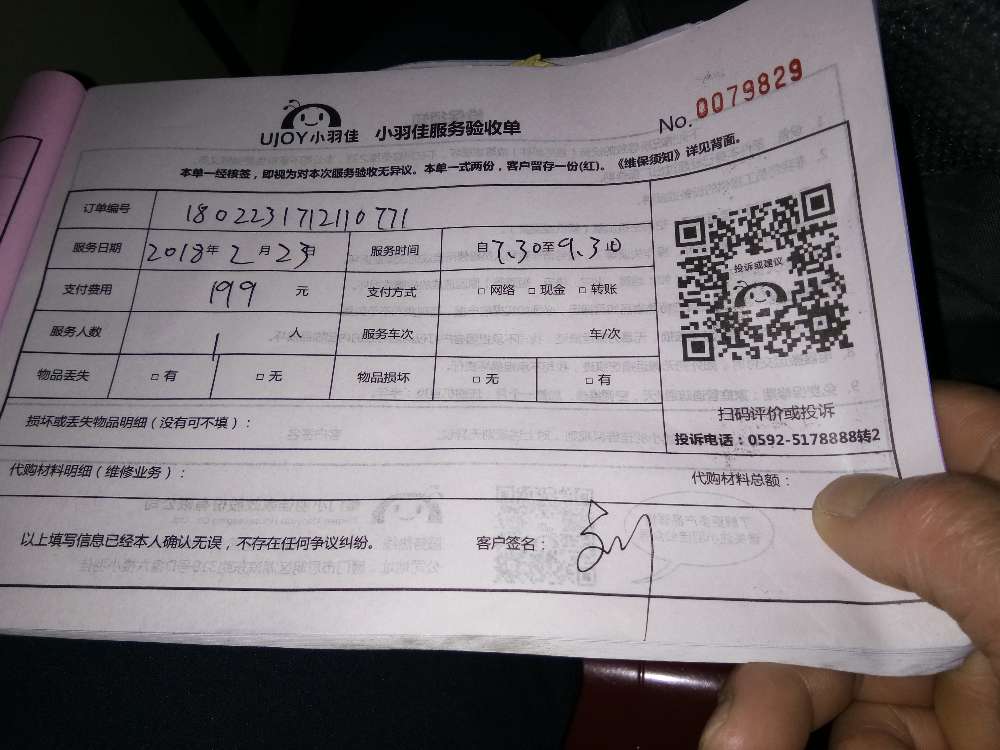 UJOY小羽佳 小羽佳服务验收单 No. 0079829
本单一经核签，即视为对本次服务验收无异议。本单一式两份，客户留存一份(红)。《维保须知》详见背面。
订单编号 1802231712110771
服务日期 2018年2月23日 服务时间 自7.30至9.30
支付费用 199 元 支付方式 □ 网络 □ 现金 □ 转账
服务人数 1 人 服务车次 车/次
物品丢失 □ 有 □ 无 物品损坏 □ 无 □ 有
投诉或建议
扫码评价或投诉
投诉电话：0592-5178888转2
损坏或丢失物品明细（没有可不填）：
代购材料明细（维修业务）： 代购材料总额：
以上填写信息已经本人确认无误，不存在任何争议纠纷。 客户签名：